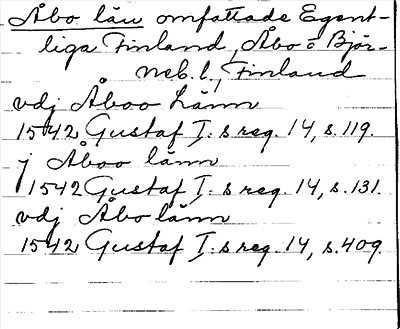 Åbo län omfattade Egent-
liga Finland, Åbo o Björ-
neb. l., Finland
vdj Åboo Länn
1542 Gustaf I:s reg. 14, s. 119.
j Åboo länn
1542 Gustaf I:s reg. 14, s. 131.
vdj Åbo länn
1542 Gustaf I:s reg. 14, s. 409.